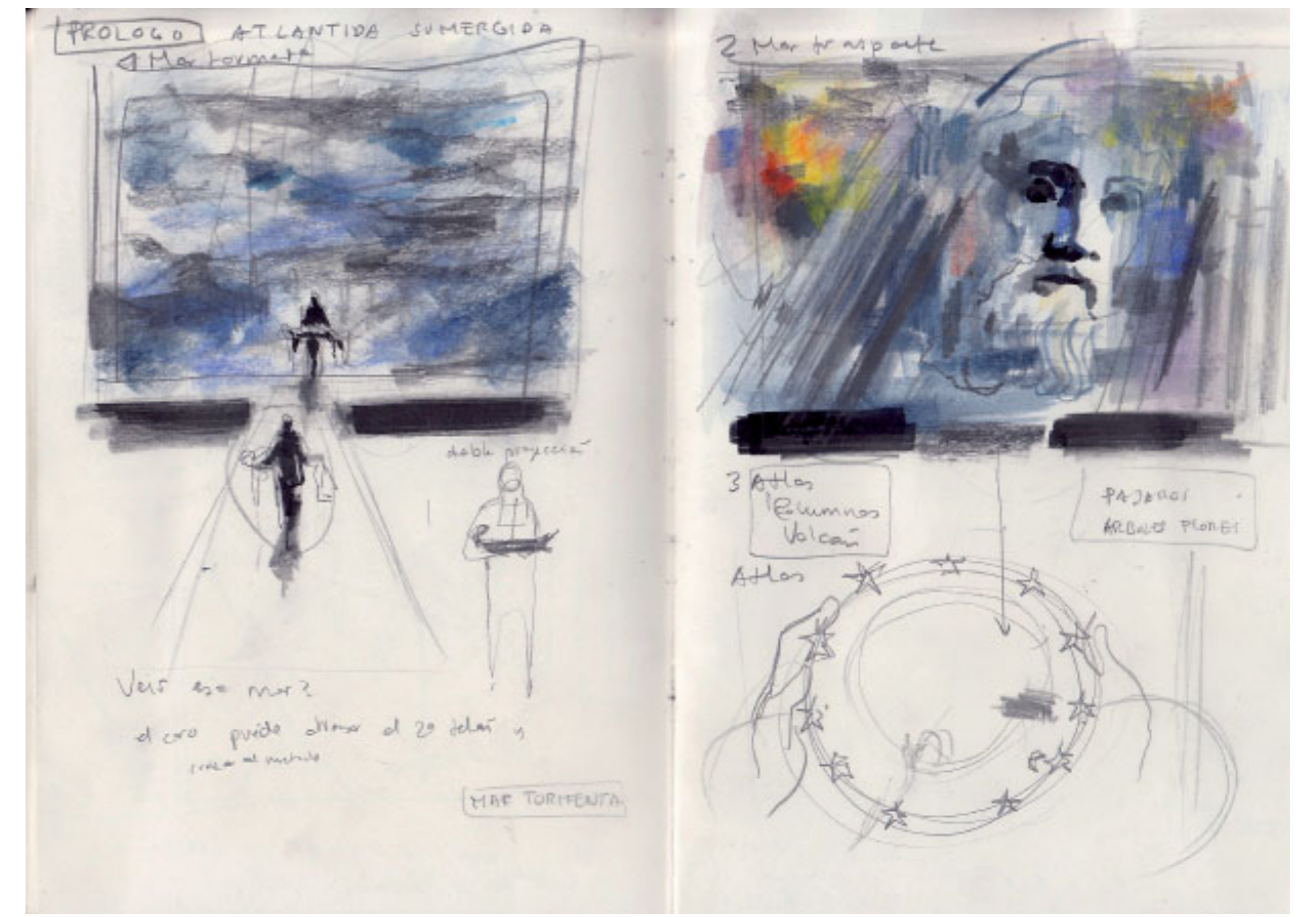 PROLOGO ATLANTIDA SUMERGIDA
1 Mar tormenta
doble proyección
Veis ese mar?
el coro puede el 2º telón y
MAR TORMENTA
2 Mar trasporte
3 Atlas
Columnas
Volcán
PAJAROS
ARBOLES FLORES
Atlas